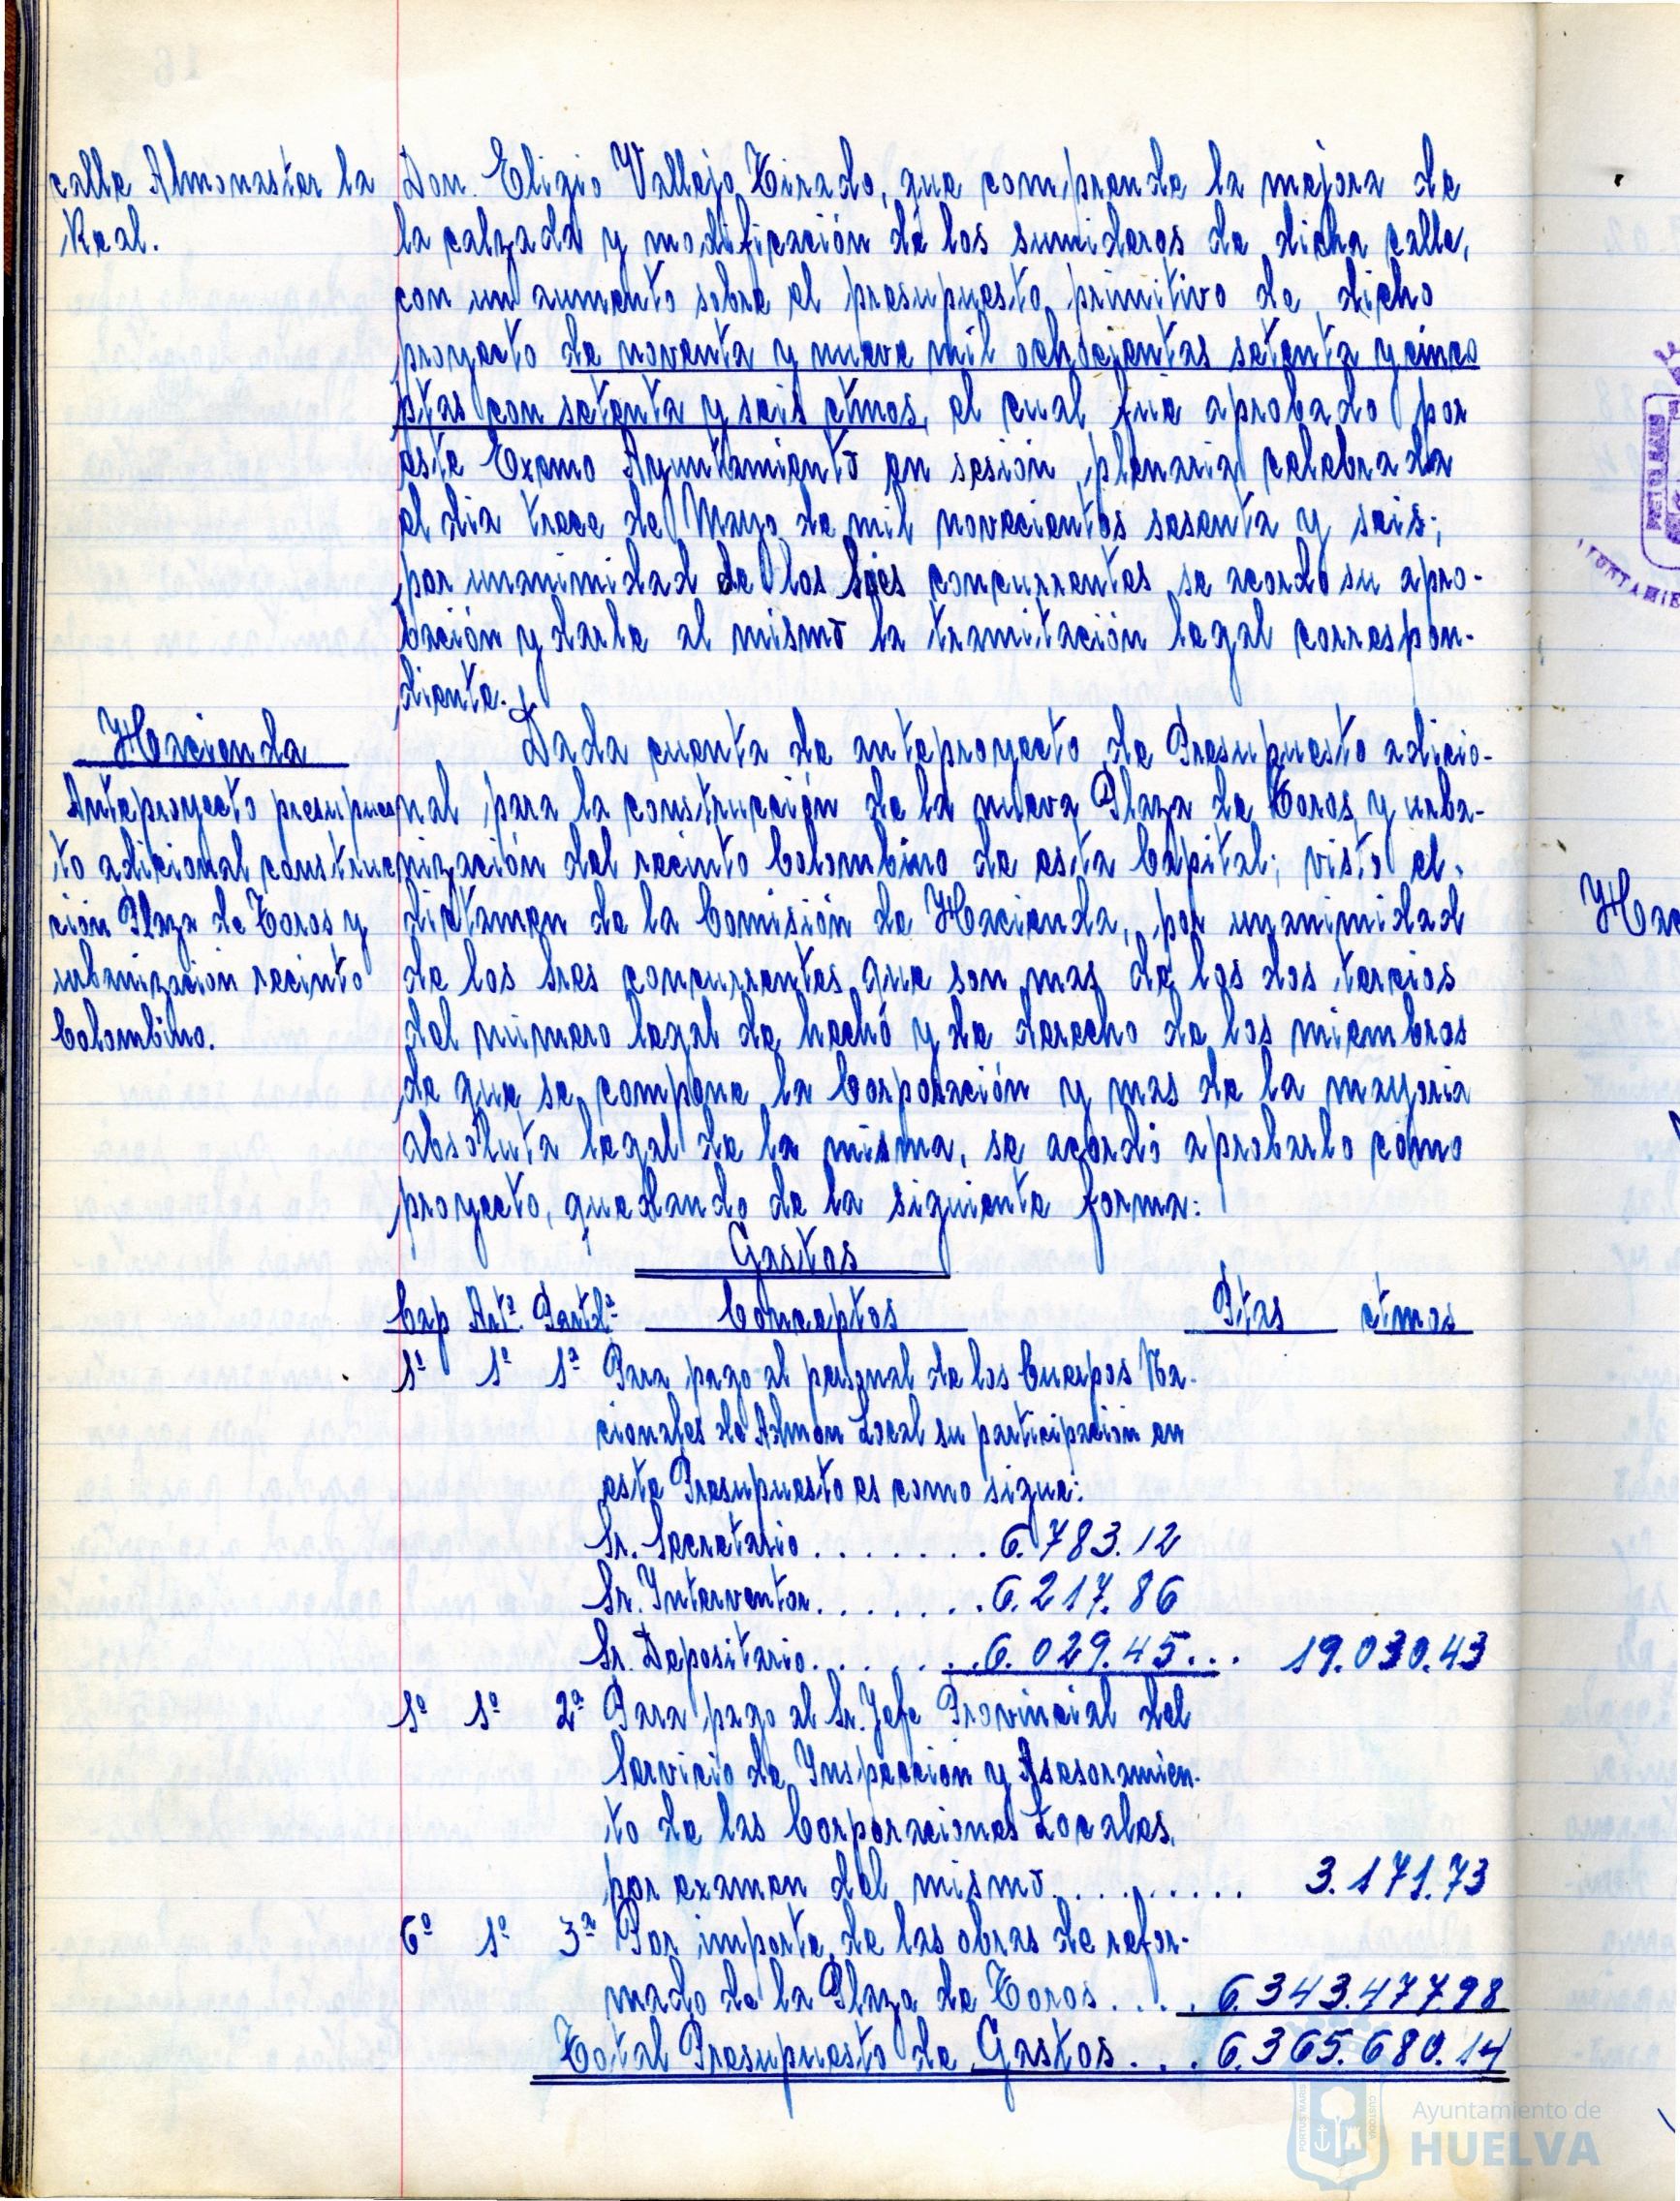 calle Almonaster la
Real.
Don. Eligio Vallejo Tirado, que comprende la mejora de
la calzada y modificación de los sumideros de dicha calle,
con un aumento sobre el presupuesto primitivo de dicho
proyecto de noventa y nueve mil ochocientas setenta y cinco
ptas con setenta y seis ctmos, el cual fue aprobado por
este Excmo Ayuntamiento en sesión plenaria celebrada
el dia trece de Mayo de mil novecientos sesenta y seis;
por unanimidad de los Sres concurrentes se acordo su apro-
bación y darle al mismo la tramitación legal correspon-
diente.
Hacienda
Anteproyecto presupues
to adicional construc
ción Plaza de Toros y
urbanizacion recinto
Colombino.
Dada cuenta de anteproyecto de Presupuesto adicio-
nal para la construcción de la nueva Plaza de Toros y urba-
nización del recinto Colombino de esta Capital; visto el
dictamen de la Comisión de Hacienda, por unanimidad
de los Sres concurrentes que son mas de los dos tercios
del número legal de hecho y de derecho de los miembros
de que se compone la Corporación y mas de la mayoria
absoluta legal de la misma, se acordó aprobarlo como
proyecto, quedando de la siguiente forma:
Gastos
Cap Artº Partdª Conceptos Ptas ctmos
1º 1º 1ª Para pago al personal de los Cuerpos Na-
cionales de Admon Local su participación en
este Presupuesto es como sigue:
Sr. Secretario ....... 6.783.12
Sr. Interventor ....... 6.217.86
Sr. Depositario ....... 6.029.45 ... 19.030.43
1º 1º 2ª Para pago al Sr. Jefe Provincial del
Servicio de Inspeccion y Asesoramien-
to de las Corporaciones Locales,
por examen del mismo ......... 3.171.73
6º 1º 3ª Por importe de las obras de refor-
mado de la Plaza de Toros .... 6.343.477.98
Total Presupuesto de Gastos ... 6.365.680.14
Hac
Ayuntamiento de
HUELVA